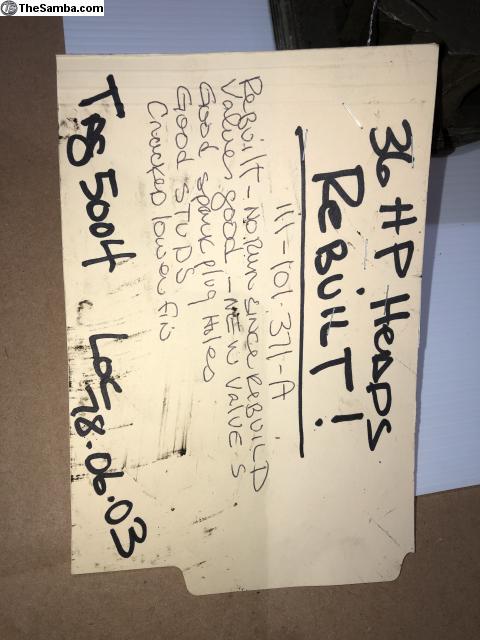 TheSamba.com
36 HP HEADS
REBUILT!
111-101-371-A
Rebuilt - No Run since REBUILD
Valves good - NEW VALVES
Good spark plug Holes
Good STUDS
Cracked lower fin
T&S 5004 Loc 78.06.03